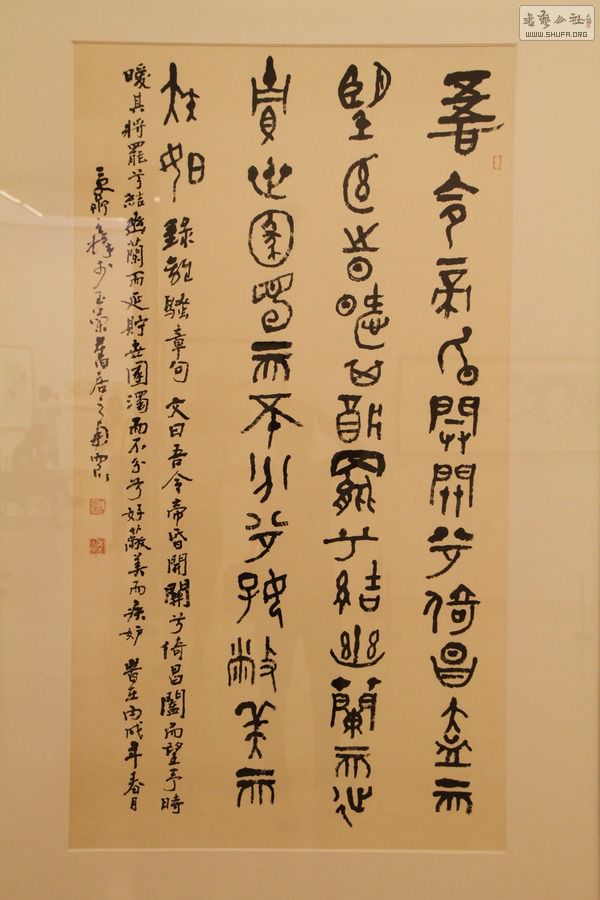 书艺公社
WWW.SHUFA.ORG
吾令帝昏開關兮倚昌盍而
望予時曖其將罷兮結幽蘭而延
貯世圂濁而不分兮好蔽美而
疾妒 錄離騷章句 文曰吾令帝昏開關兮倚昌闔而望予時
曖其將罷兮結幽蘭而延貯世圂濁而不分兮好蔽美而疾妒 時在丙戌年春月
舊居之南